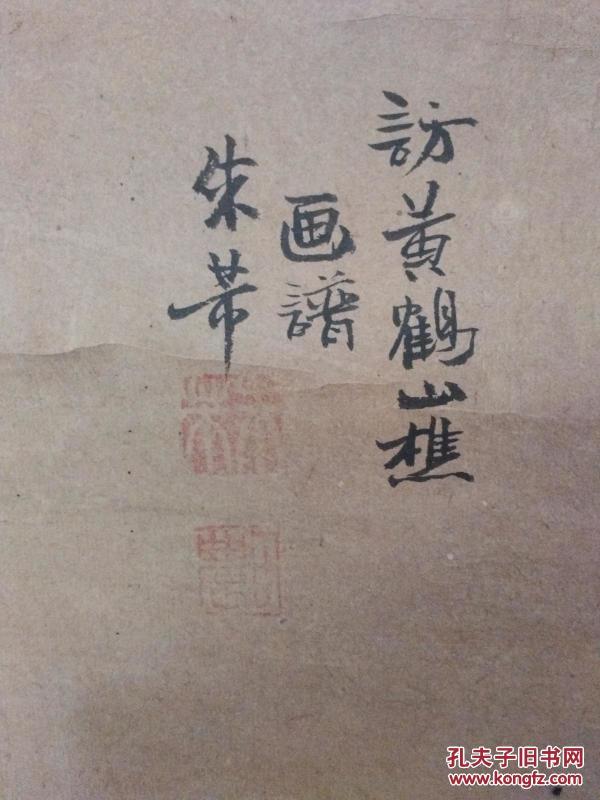 訪黄鶴山樵
画譜
朱芾
孔夫子旧书网
www.kongfz.com